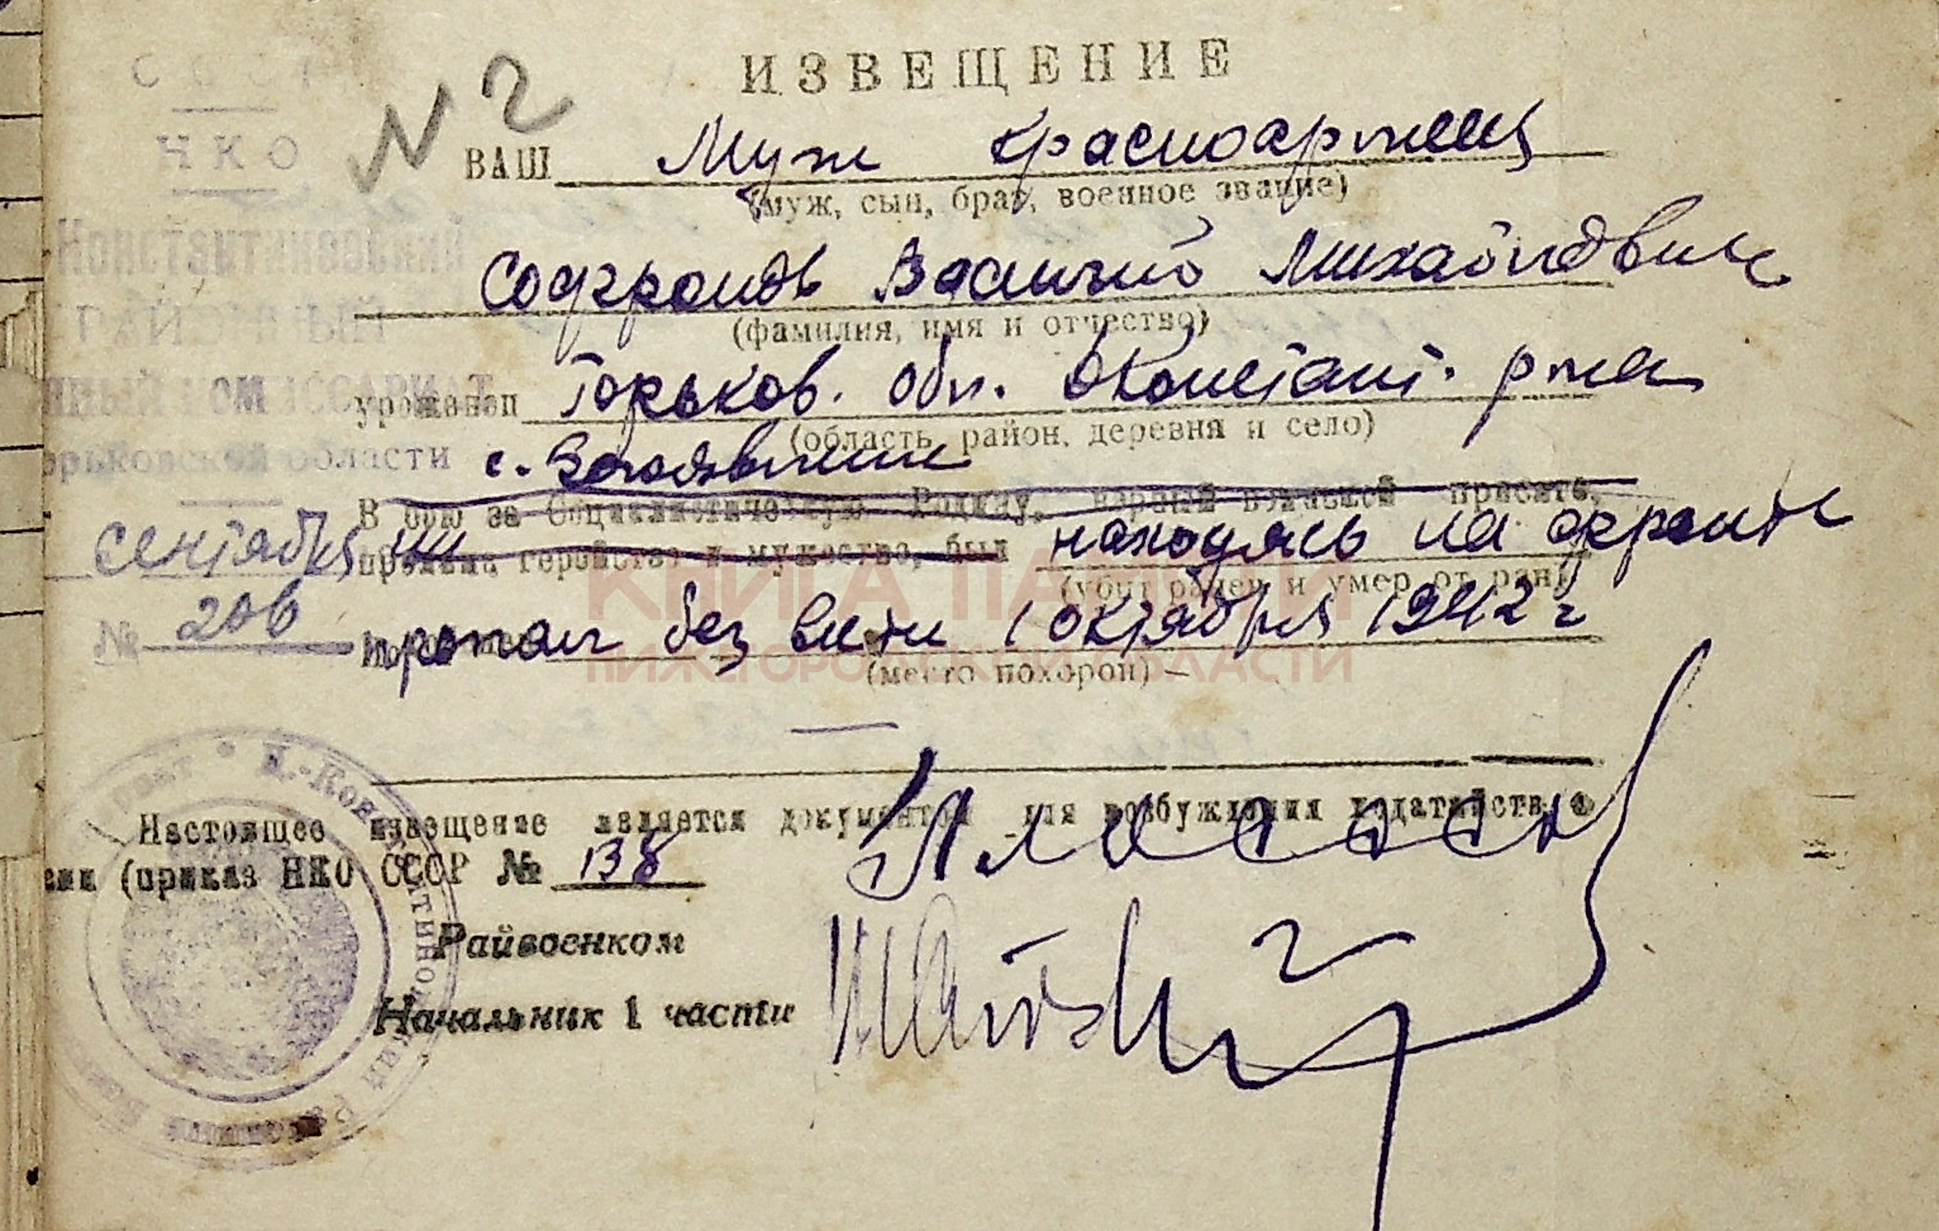 ИЗВЕЩЕНИЕ
N 2
ВАШ Муж красноармеец
(муж, сын, брат, военное звание)
Софронов Василий Михайлович
(фамилия, имя и отчество)
уроженец Горьков. обл. Д Констант. р-на
(область, район, деревня и село)
с.
В бою за Социалистическую Родину, верный воинской присяге,
проявив геройство и мужество, был находясь на фронте
(убит, ранен и умер от ран)
пропал без вести 1 октября 1942 г
(место похорон)
НКО
Константиновский
РАЙОННЫЙ
ННЫЙ КОМИССАРИАТ
орьковской области
сентября
№ 206
КНИГА ПАМЯТИ
НИЖЕГОРОДСКОЙ ОБЛАСТИ
Настоящее извещение является документом для возбуждения ходатайства о
сии (приказ НКО СССР № 138
Райвоенком
Начальник 1 части